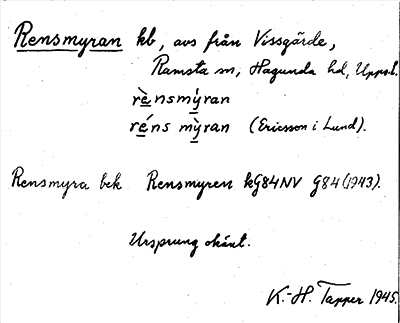 Rensmyran kb, avs från Vissgärde,
Ramsta sn, Hagunda hd, Upps.l.
rè̱nsmý̱ran
ré̱ns mỳ̱ran (Ericsson i Lund).
Rensmyra bek Rensmyren kG84NV G84 (1943).
Ursprung okänt.
K.-H. Tapper 1945.